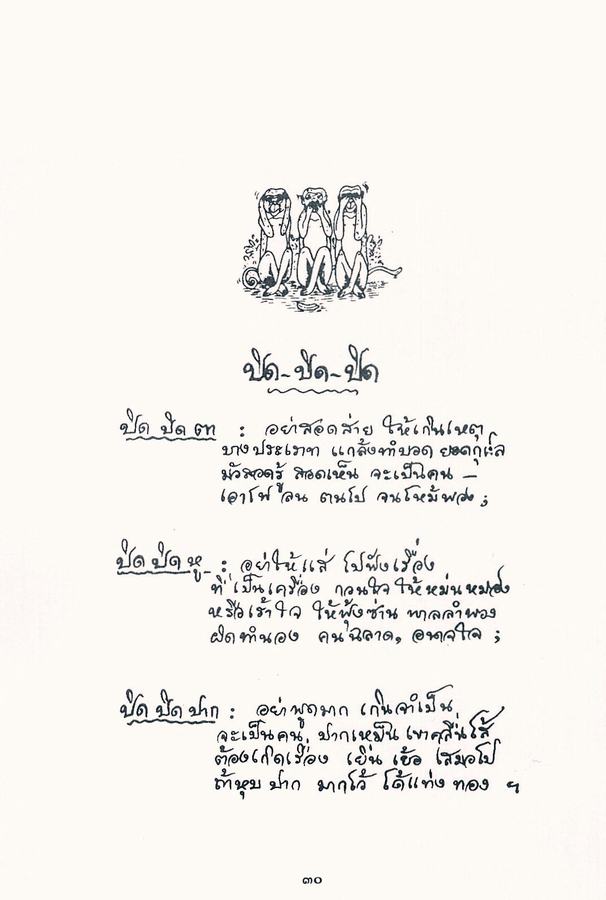 ปิด-ปิด-ปิด
ปิด ปิด ตา : อย่าสอดส่าย ให้เกินเหตุ
บางประเภท แกล้งทำบอด ยอดกุเส่ล
มัวสอดรู้ สอดเห็น จะเป็นคน –
เอาไฟ ลน ตนไป จนไหม้พอง ;
ปิด ปิด หู : อย่าให้แส่ ไปฟังเรื่อง
ที่เป็นเครื่อง กวนใจ ให้หม่นหมอง
หรือเร้าใจ ให้ฟุ้งซ่าน พาลลำพอง
ผิดทำนอง คนฉลาด, อนาจใจ ;
ปิด ปิด ปาก : อย่าพูดมาก เกินจำเป็น
จะเป็นคน, ปากเหม็น เขาคลื่นไส้
ต้องเกิดเรื่อง เยิ่น เย้อ เสมอไป
ถ้าหุบ ปาก มากไว้ ได้แท่ง ทอง ฯ
๓๐